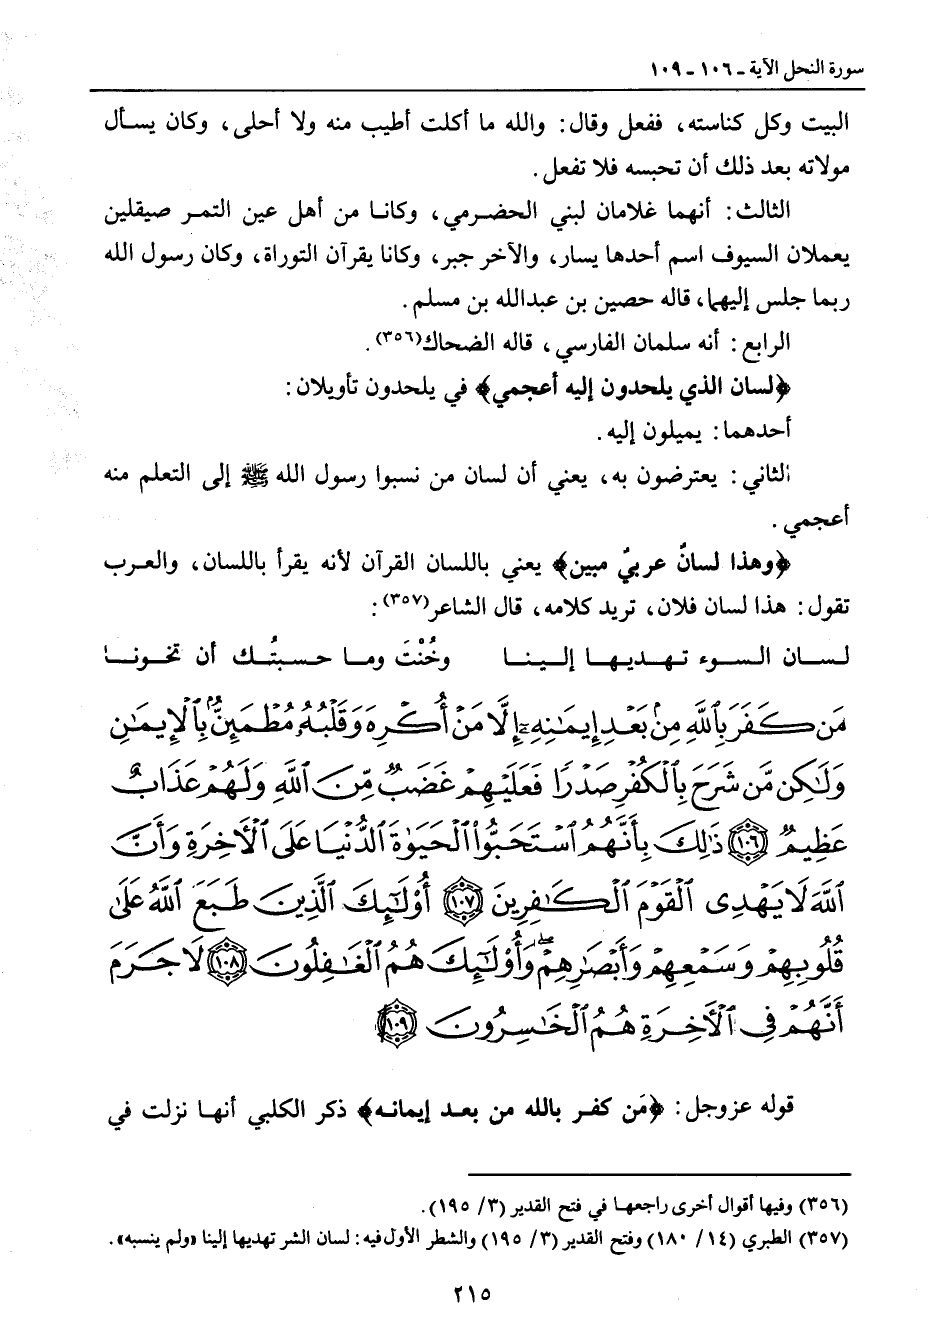 سورة النحل الآية ـ ١٠٦ ـ ١٠٩
البيت وكل كناسته، ففعل وقال: والله ما أكلت أطيب منه ولا أحلى، وكان يسأل
مولاته بعد ذلك أن تحبسه فلا تفعل.
الثالث: أنهما غلامان لبني الحضرمي، وكانا من أهل عين التمر صيقلين
يعملان السيوف اسم أحدها يسار، والآخر جبر، وكانا يقرآن التوراة، وكان رسول الله
ربما جلس إليهما، قاله حصين بن عبدالله بن مسلم.
الرابع: أنه سلمان الفارسي، قاله الضحاك(٣٥٦).
﴿لسان الذي يلحدون إليه أعجمي﴾ في يلحدون تأويلان:
أحدهما: يميلون إليه.
الثاني: يعترضون به، يعني أن لسان من نسبوا رسول الله ﷺ إلى التعلم منه
أعجمي.
﴿وهذا لسانٌ عربيٌ مبين﴾ يعني باللسان القرآن لأنه يقرأ باللسان، والعرب
تقول: هذا لسان فلان، تريد كلامه، قال الشاعر(٣٥٧):
لسان السوء تهديها إلينا وخُنْتَ وما حسبتُك أن تخونا
مَن كَفَرَ بِٱللَّهِ مِنۢ بَعْدِ إِيمَٰنِهِۦٓ إِلَّا مَنْ أُكْرِهَ وَقَلْبُهُۥ مُطْمَئِنٌّۢ بِٱلْإِيمَٰنِ
وَلَٰكِن مَّن شَرَحَ بِٱلْكُفْرِ صَدْرًا فَعَلَيْهِمْ غَضَبٌ مِّنَ ٱللَّهِ وَلَهُمْ عَذَابٌ
عَظِيمٌ ١٠٦ ذَٰلِكَ بِأَنَّهُمُ ٱسْتَحَبُّوا۟ ٱلْحَيَوٰةَ ٱلدُّنْيَا عَلَى ٱلْءَاخِرَةِ وَأَنَّ
ٱللَّهَ لَا يَهْدِى ٱلْقَوْمَ ٱلْكَٰفِرِينَ ١٠٧ أُو۟لَٰٓئِكَ ٱلَّذِينَ طَبَعَ ٱللَّهُ عَلَىٰ
قُلُوبِهِمْ وَسَمْعِهِمْ وَأَبْصَٰرِهِمْ ۖ وَأُو۟لَٰٓئِكَ هُمُ ٱلْغَٰفِلُونَ ١٠٨ لَا جَرَمَ
أَنَّهُمْ فِى ٱلْءَاخِرَةِ هُمُ ٱلْخَٰسِرُونَ ١٠٩
قوله عزوجل: ﴿مَن كفر بالله من بعد إيمانه﴾ ذكر الكلبي أنها نزلت في
(٣٥٦) وفيها أقوال أخرى راجعها في فتح القدير (٣/ ١٩٥).
(٣٥٧) الطبري (١٤/ ١٨٠) وفتح القدير (٣/ ١٩٥) والشطر الأول فيه: لسان الشر تهديها إلينا «ولم ينسبه».
٢١٥